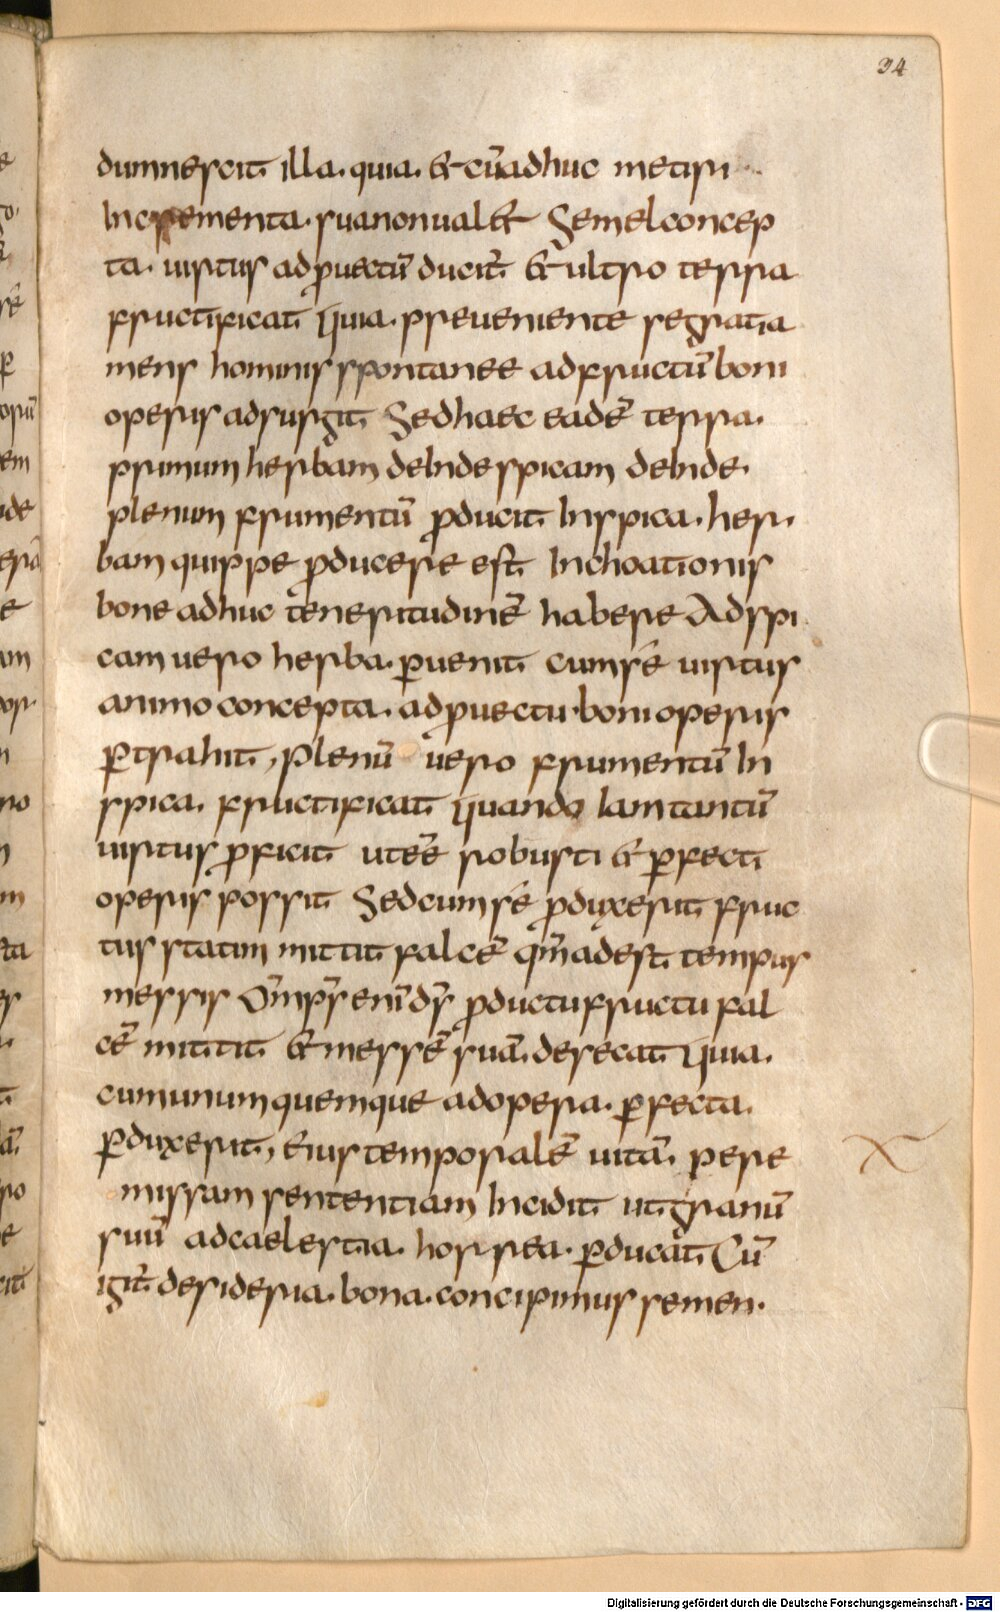 34
dumnescit illa. quia. & cūadhuc metiri
Incrementa. suanonual& Semelconcep
ta. uirtus adꝓuectū ducit̄ & ultro terra
fructificat Quia. preueniente segratia
mens hominis spontanee adfructū boni
operis adsurgit Sedhaec eadē terra.
primum herbam deInde spicam deInde.
plenum frumentū ꝓducit Inspica. her.
bam quippe ꝓducere est Inchoationis
bone adhuc teneritudinē habere Adspi
cam uero herba. ꝑuenit cumsē uirtus
animo concepta. adꝓuectu boni operis
ꝑtrahit, Plenū uero frumentū In
spica. fructificat Quando Iam tantū
uirtus ꝓficit uteē robusti & ꝑfecti
operis possit Sedcumsē ꝓduxerit fruc
tus statim mittit falcē qm̄adest tempus
messis Om̄ps̄ enī ds̄ ꝓductu fructu fal
cē mittit & messē suā. desecat Quia.
cumunumquemque adopera. ꝑfecta.
ꝑduxerit, Eius temporalē uitā. pere
missam sententiam Incidit utgranū
suū adcaelestia. horrea. ꝑducat Cū
igit̄ desideria. bona. concipimus semen.
Digitalisierung gefördert durch die Deutsche Forschungsgemeinschaft - DFG